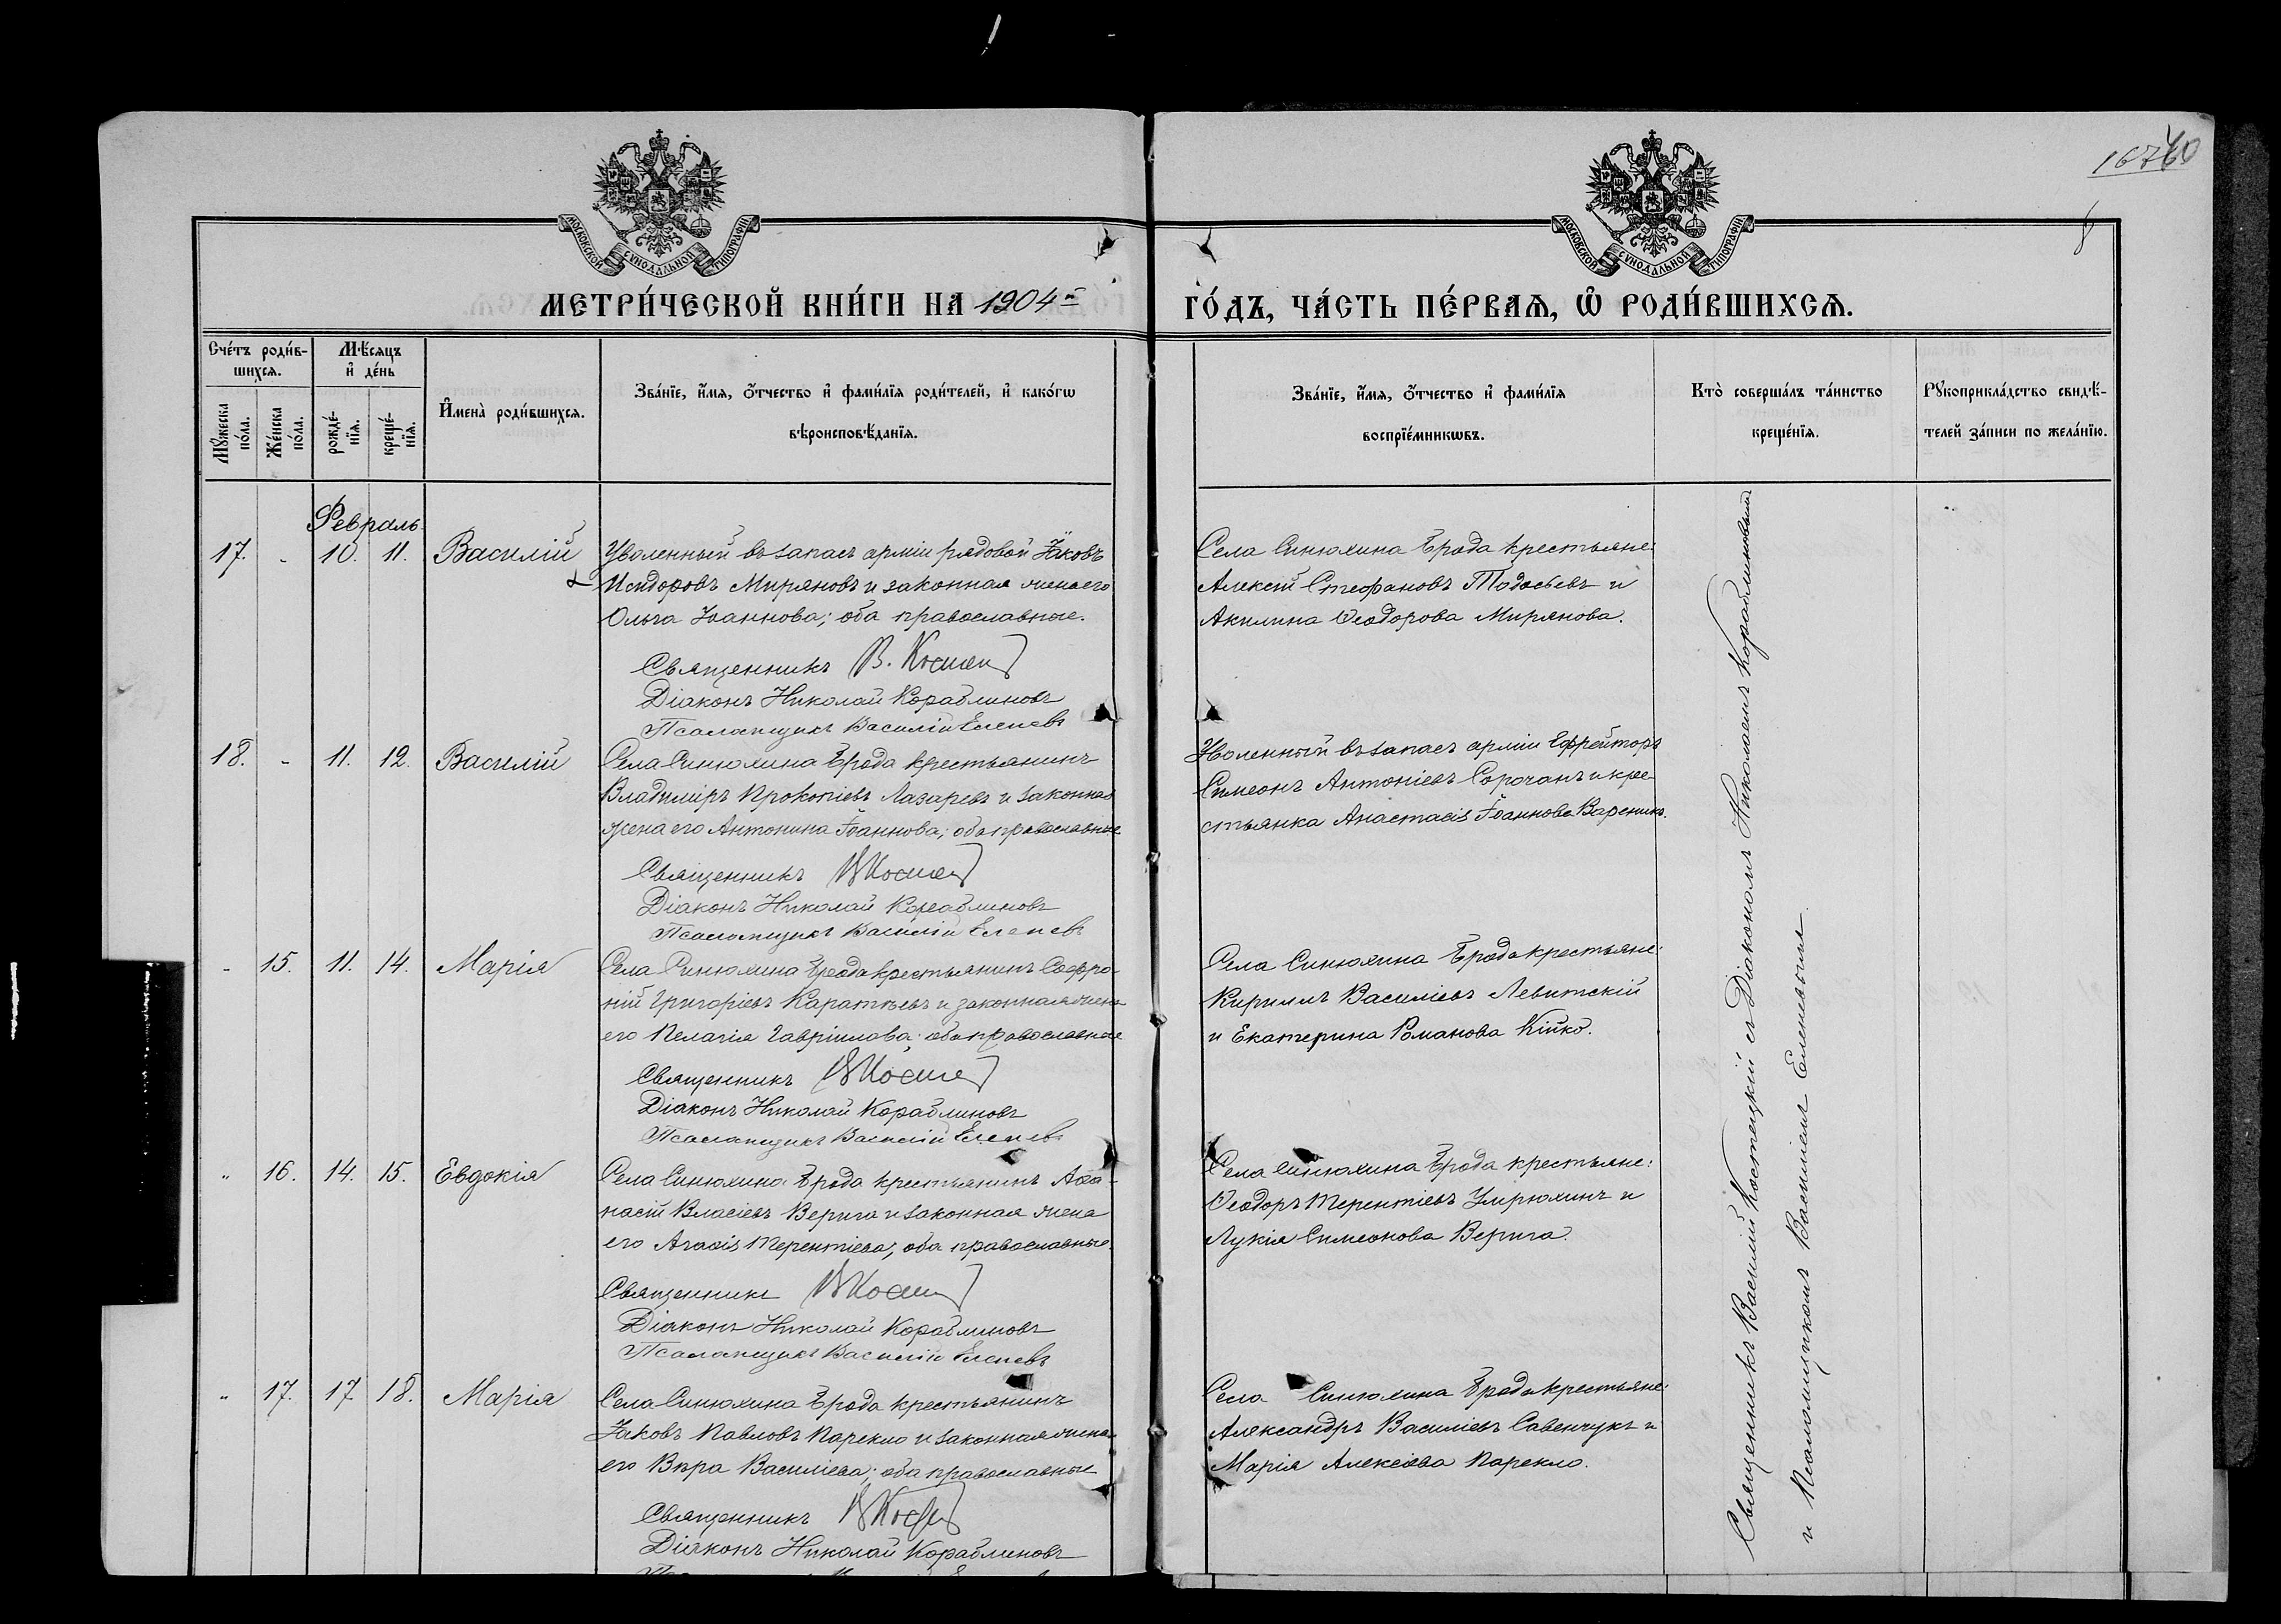 16760
8
МОСКОВСКОЙ СѴНОДАЛЬНОЙ ТИПОГРАФІИ
МОСКОВСКОЙ СѴНОДАЛЬНОЙ ТИПОГРАФІИ
МЕТРИ́ЧЕСКОЙ КНИ́ГИ НА 1904-й
ГО́ДЪ, ЧА́СТЬ ПЕ́РВАѦ, Ѡ҆ РОДИ́ВШИХСѦ.
Сче́тъ роди́в-
шихсѧ.
Мѣ́сяцъ
и҆ де́нь
Мꙋ́жеска
по́ла.
Же́нска
по́ла.
рожде́-
нїѧ.
креще́-
нїѧ.
И҆мена̀ роди́вшихсѧ.
Зва́нїе, и҆́мѧ, ѻ҆́тчество и҆ фами́лїѧ роди́телей, и҆ како́гѡ
вѣроисповѣ́данїѧ.
Зва́нїе, и҆́мѧ, ѻ҆́тчество и҆ фами́лїѧ
воспрїе́мникѡвъ.
Кто̀ соверша́лъ та́инство
креще́нїѧ.
Рꙋкоприкла́дство свидѣ́-
телей за́писи по жела́нїю.
Февраль
17. - 10. 11. Василій
Уволенный въ запасъ арміи рядовой Іаковъ
Исидоровъ Миряновъ и законная жена его
Ольга Іоаннова; оба православные.
Священникъ В. Костец
Діаконъ Николай Кораблиновъ
Псаломщикъ Василій Еленевъ
Села Синюхина Брода крестьяне:
Алексій Стефановъ Тодосьевъ и
Акилина Ѳеодорова Мирянова.
18. - 11. 12. Василій
Села Синюхина Брода крестьянинъ
Владиміръ Прокопіевъ Лазаревъ и законная
жена его Антонина Іоаннова; оба православные
Священникъ В Костец
Діаконъ Николай Кораблиновъ
Псаломщикъ Василій Еленевъ
Уволенный въ запасъ арміи Ефрейторъ
Симеонъ Антоніевъ Сорочанъ и кре-
стьянка Анастасія Іоаннова Вареникъ.
- 15. 11. 14. Марія
Села Синюхина Брода крестьянинъ Софро-
ній Григоріевъ Каратѣевъ и законная жена
его Пелагія Гавріилова; оба православные
Священникъ В Костец
Діаконъ Николай Кораблиновъ
Псаломщикъ Василій Еленевъ
Села Синюхина Брода крестьяне:
Кириллъ Василіевъ Левитскій
и Екатерина Романова Кійко.
" 16. 14. 15. Евдокія
Села Синюхина Брода крестьянинъ Аѳа-
насій Власіевъ Верига и законная жена
его Агаѳія Терентіева; оба православные.
Священникъ В Костец
Діаконъ Николай Кораблиновъ
Псаломщикъ Василій Еленевъ
Села Синюхина Брода крестьяне:
Ѳеодоръ Терентіевъ Умрюхинъ и
Лукія Симеонова Верига.
" 17. 17 18. Марія
Села Синюхина Брода крестьянинъ
Іаковъ Павловъ Парекло и законная жена
его Вѣра Василіева; оба православные
Священникъ В Костец
Діаконъ Николай Кораблиновъ
Села Синюхина Брода крестьяне:
Александръ Василіевъ Савенчукъ и
Марія Алексіева Парекло.
Священникъ Василій Костецкій съ Діакономъ Николаемъ Кораблиновымъ
и Псаломщикомъ Василіемъ Еленевымъ.